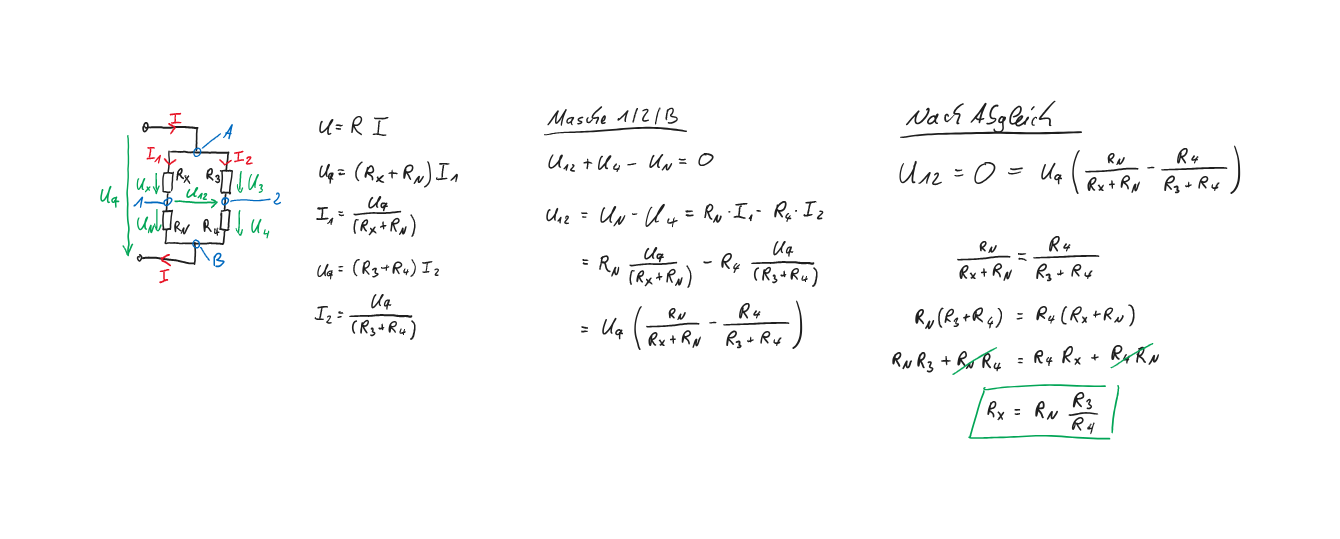 I
A
I₁
I₂
Rₓ
R₃
Uₓ
U₃
U₁₂
Uq
1
2
U_N
R_N
R₄
U₄
B
I
U = R I
Uq = (Rₓ + R_N) I₁
I₁ = Uq / (Rₓ + R_N)
Uq = (R₃ + R₄) I₂
I₂ = Uq / (R₃ + R₄)
Masche 1/2/B
U₁₂ + U₄ - U_N = 0
U₁₂ = U_N - U₄ = R_N · I₁ - R₄ · I₂
= R_N Uq / (Rₓ + R_N) - R₄ Uq / (R₃ + R₄)
= Uq (R_N / (Rₓ + R_N) - R₄ / (R₃ + R₄))
Nach Abgleich
U₁₂ = 0 = Uq (R_N / (Rₓ + R_N) - R₄ / (R₃ + R₄))
R_N / (Rₓ + R_N) = R₄ / (R₃ + R₄)
R_N (R₃ + R₄) = R₄ (Rₓ + R_N)
R_N R₃ + R_N R₄ = R₄ Rₓ + R₄ R_N
Rₓ = R_N R₃ / R₄